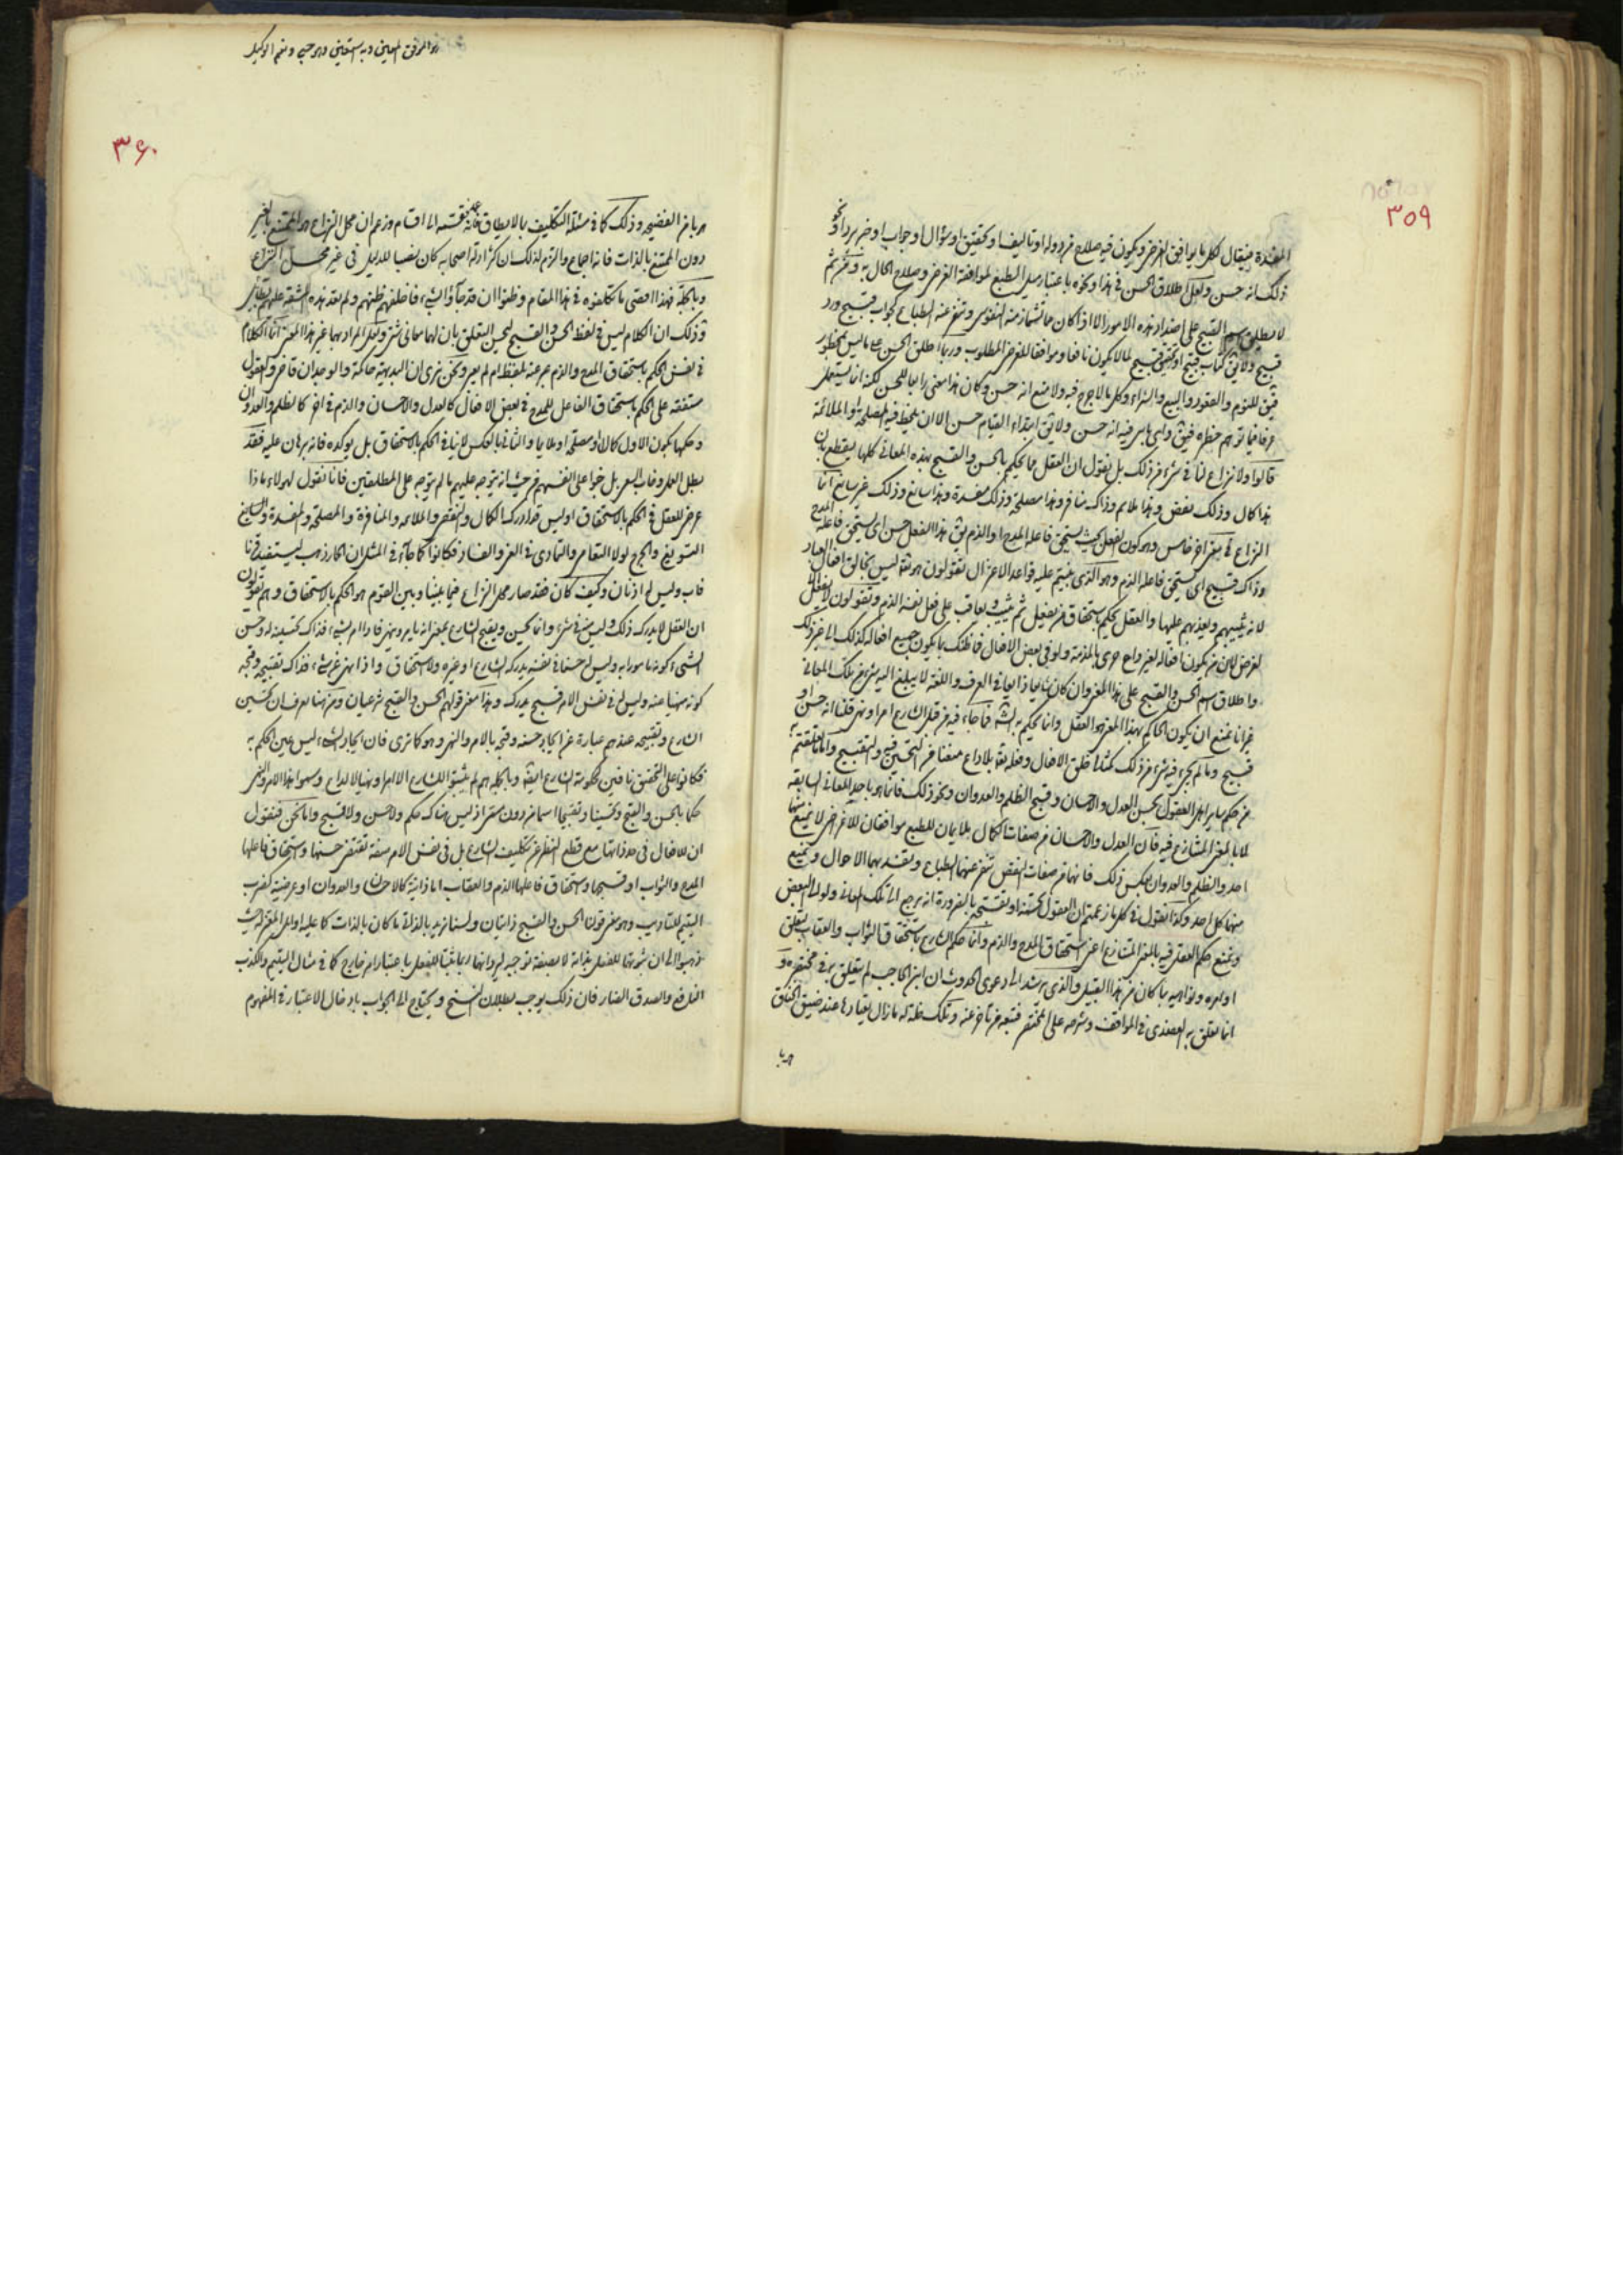 ٣٥٩
المفسدة فيقال لكل ما يوافق الغرض ويكون فيه صلاح من دولة او تاليف او تحقيق او سؤال او جواب او خبر يراد او نحو
ذلك انه حسن ولعل اطلاق الحسن في هذا ونحوه باعتبار ميل الطبع لموافقة الغرض وصلاح الحال به ومن ثم
لا يطلق اسم القبيح على اضداد هذه الامور الا اذا كان مما تشمأز منه النفوس وتنفر عنه الطباع كجواب قبيح ورد
قبيح ولا يق كتاب قبيح او تحقيق قبيح لما لا يكون نافعا وموافقا للغرض المطلوب وربما اطلق الحسن على ما ليس بمحظور
فيق للنوم والعقود والبيع والشراء وكل ما لا حرج فيه ولا منع انه حسن وكان هذا معنى رابعا للحسن لكنه انما يستعمل
عرفا فيما توهم حظره فيق ولا باس فيه انه حسن ولا يق ابتداء القيام حسن الا ان يلحظ فيه المصلحة او الملائمة
قالوا ولا نزاع لنا في شيء من ذلك بل نقول ان العقل مما يحكم بالحسن والقبح بهذه المعاني كلها يقطع بان
هذا كمال وذلك نقص وهذا ملائم وذاك منافر وهذا مصلحة وذلك مفسدة وهذا سائغ وذلك غير سائغ انما
النزاع في معنى اخر خامس وهو كون الفعل بحيث يستحق فاعله المدح او الذم يق هذا الفعل حسن اى يستحق فاعله المدح
وذاك قبيح اى يستحق فاعله الذم وهو الذي يبتني عليه قواعد الاعتزال تقولون هو تعالى ليس بخالق افعال العباد
لانه يثيبهم ويعذبهم عليها والعقل يحكم باستحقاق من يفعل ثم يثيب ويعاقب على فعل نفسه الذم وتقولون لا يفعل الا
لغرض لان من يكون افعاله لغير داع حرى بالمذمة ولو في بعض الافعال فما ظنك بما يكون جميع افعاله كذلك الى غير ذلك
واطلاق اسم الحسن والقبح على هذا المعنى وان كان شايعا ذايعا في العرف واللغة لا يبلغ اليه شيء من تلك المعاني
غير انا نمنع ان يكون الحاكم بهذا المعنى هو العقل وانما يحكم به الشرع فما جاء فيه من قبل الشارع امر او نهى قلنا انه حسن او
قبيح وما لم يجيء فيه شيء من ذلك
من حكم ساير اهل العقول بحسن العدل والاحسان وقبح الظلم والعدوان ونحو ذلك فانما هو باحد المعاني السابقة
لا بالمعنى المتنازع فيه فان العدل والاحسان من صفات الكمال ملايمان للطبع موافقان للاغراض لا يمنع منهما
احد والظلم والعدوان بعكس ذلك فانهما من صفات النقص تنفر عنهما الطباع وتفسد بهما الاحوال ويمنع
منهما كل احد وهكذا نقول في كل ما زعمتم ان العقول تحسنه او تستقبحه بالضرورة انه يرجع الى تلك المعاني ولو الى البعض
ونمنع حكم العقل فيه بالمعنى المتنازع اعنى استحقاق المدح والذم وانما حكم الشارع باستحقاق الثواب والعقاب يتعلق
اوامره ونواهيه بما كان من هذا القبيل والذي يرشد الى دعوى الحدوث ان ابن الحاجب لم يتعلق به في مختصره و
انما تعلق به العضدى في المواقف وشرحه على المختصر فتبعه من تاخر عنه وتلك خلة له ما زال يعتادها عند ضيق الخناق
هربا
هو الموفق المعين وبه نستعين وهو حسبي ونعم الوكيل
٣٦٠
هربا من الفضيحة وذلك كما في مسئلة التكليف بما لا يطاق فانه قسمه الى اقسام وزعم ان محل النزاع هو الممتنع بالغير
دون الممتنع بالذات فانه اجماع والزم لذلك ان كثر ادلة اصحابه كان نصبا للدليل في غير محل النزاع
وبالجملة فهذا اقصى ما تكلفوه في هذا المقام وظنوا ان قد جاؤا بشيء فاخلفهم ظنهم ولم تعد هذه المشقة عليهم بطائل
وذلك ان الكلام ليس في لفظ الحسن والقبيح ليحسن التعلق بان لهما معاني شتى ولعل المراد بهما غير هذا المعنى انما الكلام
في نفس الحكم باستحقاق المدح والذم عبر عنه بلفظ ام لم يعبر ونحن نرى ان البديهة حاكمة والوجدان قاض والعقول
متفقة على الحكم باستحقاق الفاعل للمدح في بعض الافعال كالعدل والاحسان والذم في اخر كالظلم والعدوان
وحكمها بكون الاول كمالا او مصلحة او ملايما والثاني بالعكس لا ينافي الحكم بالاستحقاق بل يوكده فانه برهان عليه فقد
بطل العمل وخاب السعى بل جنوا على انفسهم من حيث انه يتوجه عليهم ما لم يتوجه على المطلقين فانا نقول لهولاء ماذا
عرض للعقل في الحكم بالاستحقاق او ليس قد ادرك الكمال والنقص والملائمة والمنافرة والمصلحة والمفسدة والسايغ
التسويغ والحرج لولا التعامى والتمادى في الغى والفساد فكانوا كما جاء في المثل ان الحمار ذهب ليستفيد قرنا
فآب وليس له اذنان وكيف كان فقد صار محل النزاع فيما بيننا وبين القوم هو الحكم بالاستحقاق وهم يقولون
ان العقل لا يدرك ذلك وليس منه في شيء وانما يحسن ويقبح الشارع بمعنى انه يامر وينهى فاذا امر بشيء فذاك تحسينه له وحسن
الشيء كونه مامورا به وليس له حسنا في نفسه يدركه الشارع او غيره ولا استحقاق واذا نهى عن شيء فذاك تقبيحه وقبحه
كونه منهيا عنه وليس له في نفس الامر قبح يدرك وهذا معنى قولهم الحسن والقبح شرعيان ومن هنا يعرف ان تحسين
الشارع وتقبيحه عندهم عبارة عن ايجاد حسنه وقبحه بالامر والنهى وهو كما ترى فان ايجاد الشيء ليس عين الحكم به
فكانوا على التحقيق نافين لحكومة الشارع ايضا وبالجملة هم لم يثبتوا للشارع الا امرا ونهيا لا لداع وسموا هذا الامر والنهى
حكما بالحسن والقبح وتحسينا وتقبيحا اسما من دون معنى اذ ليس هناك حكم ولا حسن ولا قبيح واما نحن فنقول
ان للافعال في حد ذاتها مع قطع النظر عن تكليف الشارع بل في نفس الامر صفة تقتضى حسنها واستحقاق فاعلها
المدح والثواب او قبحها واستحقاق فاعلها الذم والعقاب اما ذاتية كالاحسان والعدوان او عرضية كضرب
اليتيم للتاديب وهو معنى قولنا الحسن والقبح ذاتيان ولسنا نريد بالذاتي ما كان بالذات كما عليه اوائل المعتزلة حيث
ذهبوا الى ان ثبوتهما للفعل بذاته لا بصفة توجبه لهم وانهما ربما يثبتا للفعل باعتبار امر خارج كما في مثال اليتيم والكذب
النافع والصدق الضار فان ذلك يوجب بطلان النسخ ويحتاج الى الجواب بادخال الاعتبار في المفهوم